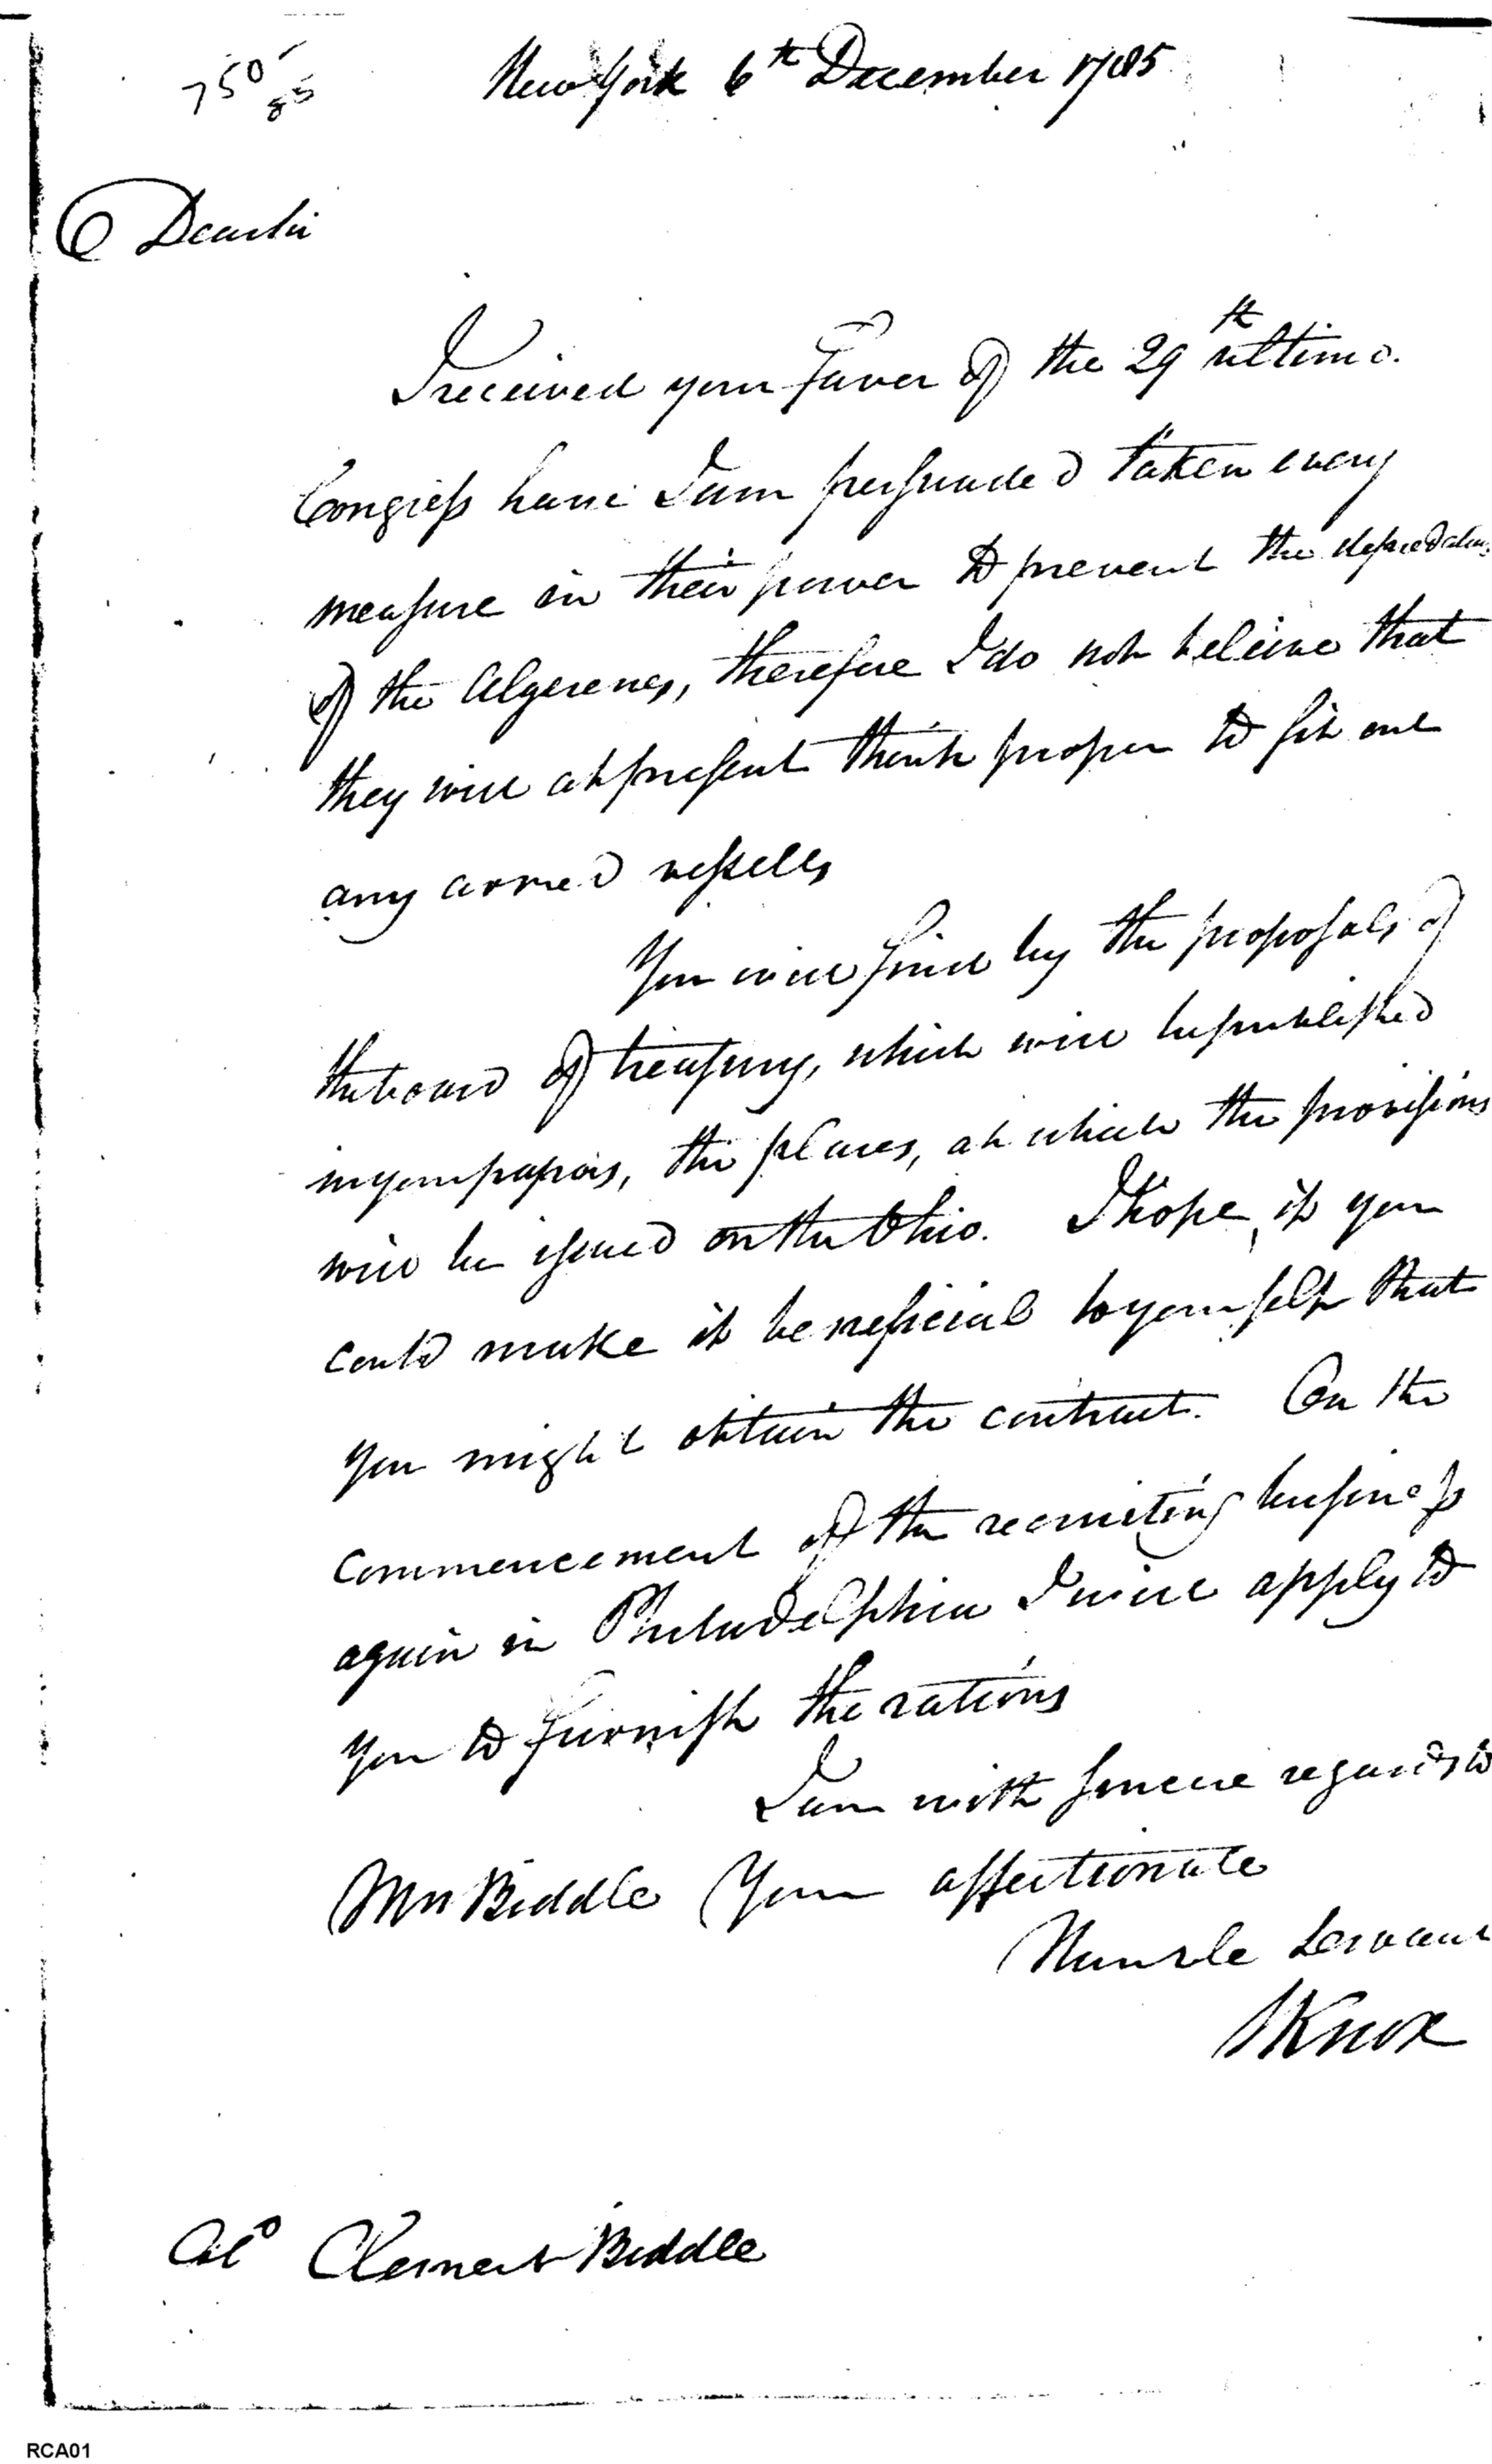 750
85
New York 6th December 1785
Dear sir
I received your Favor of the 29th ultimo.
Congress have I am persuaded taken every
measure in their power to prevent the depredations
of the Algerenes, therefore I do not beleive that
they will at present think proper to fit out
any armed vessells
You will find by the proposals of
the board of treasury, which will be published
in your papers, the places, at which the provisions
will be issued on the Ohio. I hope, if you
could make it beneficial to yourself that
you might obtain the contract. On the
commencement of the recruiting business
again in Philadelphia I will apply to
you to furnish the rations
I am with sincere regards to
Mrs Biddle Your affectionate
Humble Servant
HKnox
Colo Clement Biddle
RCA01